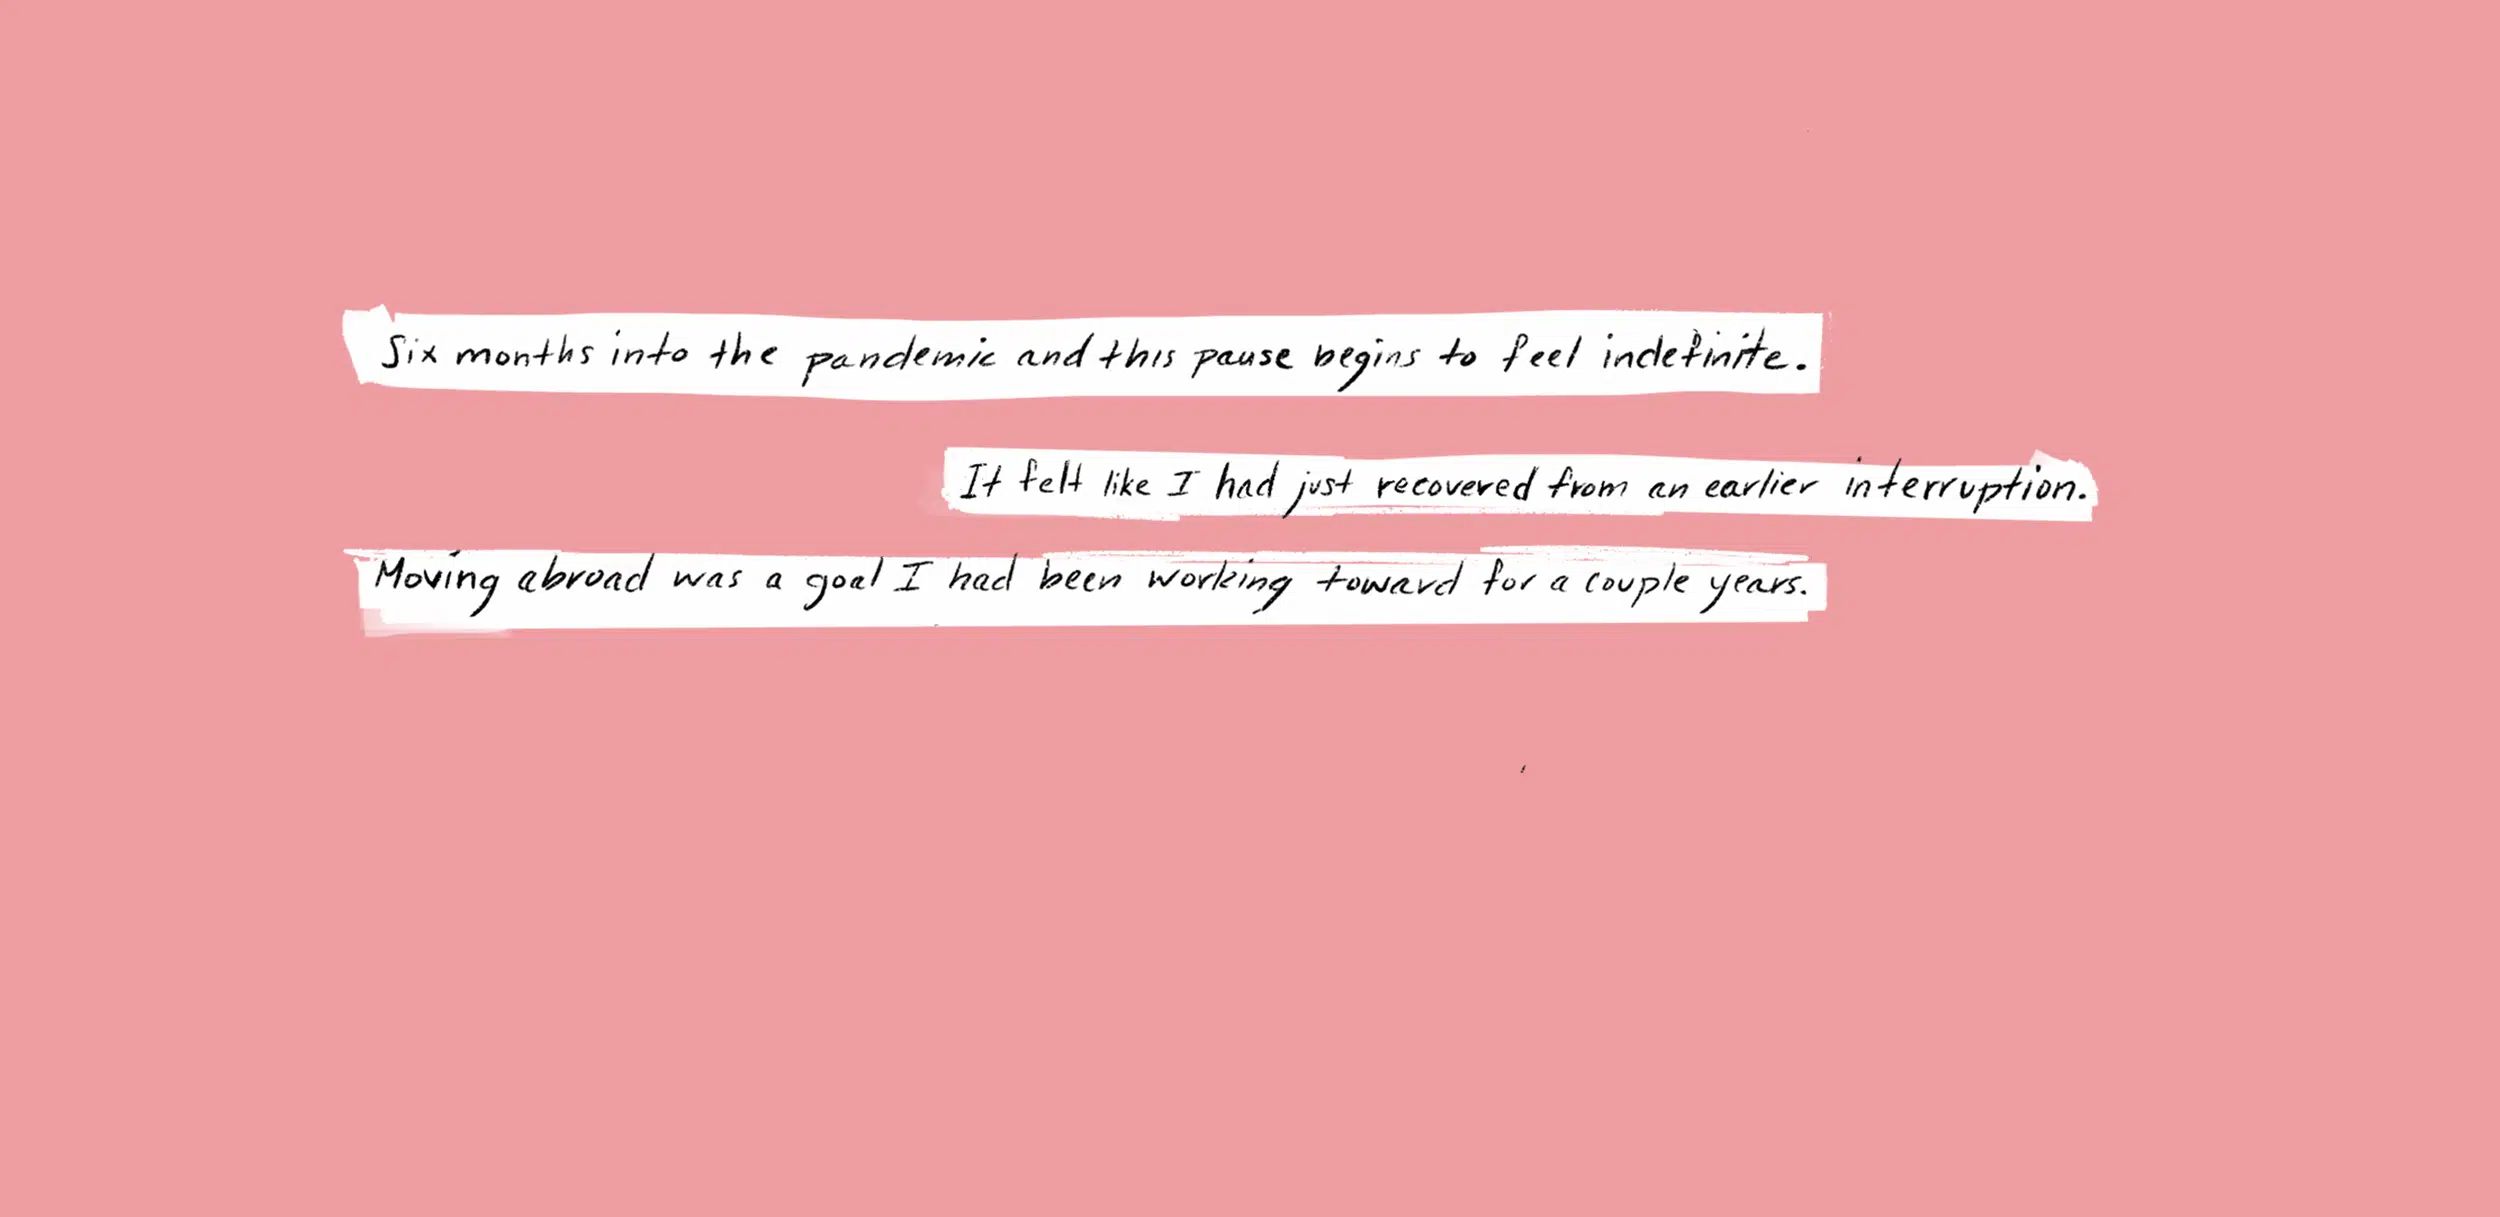 Six months into the pandemic and this pause begins to feel indefinite.
It felt like I had just recovered from an earlier interruption.
Moving abroad was a goal I had been working toward for a couple years.